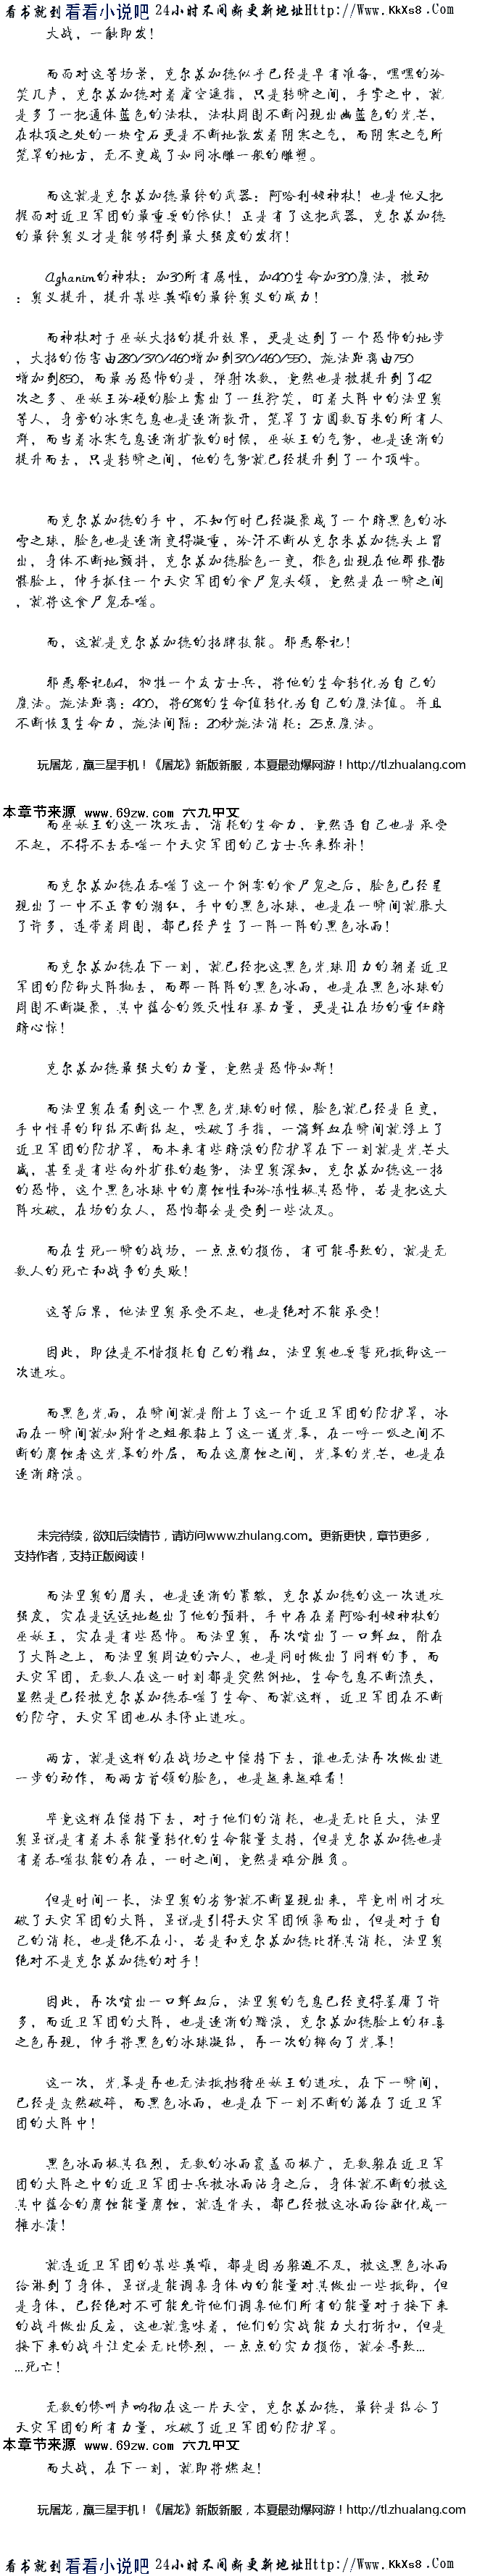 看书就到 看看小说吧 24小时不间断更新地址Http://Www.KkXs8.Com
大战，一触即发！
而面对这等场景，克尔苏加德似乎已经是早有准备，嘿嘿的冷
笑几声，克尔苏加德对着虚空遥指，只是转瞬之间，手掌之中，就
是多了一把通体蓝色的法杖，法杖周围不断闪现出幽蓝色的光芒，
在杖顶之处的一块宝石更是不断地散发着阴寒之气，而阴寒之气所
笼罩的地方，无不变成了如同冰雕一般的雕塑。
而这就是克尔苏加德最终的武器：阿哈利姆神杖！也是他又把
握面对近卫军团的最重要的依仗！正是有了这把武器，克尔苏加德
的最终奥义才是能够得到最大强度的发挥！
Aghanim的神杖：加30所有属性，加400生命加300魔法，被动
：奥义提升，提升某些英雄的最终奥义的威力！
而神杖对于巫妖大招的提升效果，更是达到了一个恐怖的地步
，大招的伤害由280/370/460增加到370/460/550，施法距离由750
增加到850，而最为恐怖的是，弹射次数，竟然也是被提升到了42
次之多、巫妖王冷硬的脸上露出了一丝狞笑，盯着大阵中的法里奥
等人，身旁的冰寒气息也是逐渐散开，笼罩了方圆数百米的所有人
群，而当着冰寒气息逐渐扩散的时候，巫妖王的气势，也是逐渐的
提升而去，只是转瞬之间，他的气势就已经提升到了一个顶峰。
而克尔苏加德的手中，不知何时已经凝聚成了一个暗黑色的冰
雪之球，脸色也是逐渐变得凝重，冷汗不断从克尔来苏加德头上冒
出，身体不断地颤抖，克尔苏加德脸色一变，狠色出现在他那张骷
髅脸上，伸手抓住一个天灾军团的食尸鬼头领，竟然是在一瞬之间
，就将这食尸鬼吞噬。
而，这就是克尔苏加德的招牌技能。邪恶祭祀！
邪恶祭祀lv4，牺牲一个友方士兵，将他的生命转化为自己的
魔法。施法距离：400，将60%的生命值转化为自己的魔法值。并且
不断恢复生命力，施法间隔：20秒施法消耗：25点魔法。
玩屠龙，赢三星手机！《屠龙》新版新服，本夏最劲爆网游！http://tl.zhulang.com
本章节来源 www.69zw.com 六九中文
而巫妖王的这一次攻击，消耗的生命力，竟然连自己也是承受
不起，不得不去吞噬一个天灾军团的己方士兵来弥补！
而克尔苏加德在吞噬了这一个倒霉的食尸鬼之后，脸色已经呈
现出了一中不正常的潮红，手中的黑色冰球，也是在一瞬间就胀大
了许多，连带着周围，都已经产生了一阵一阵的黑色冰雨！
而克尔苏加德在下一刻，就已经把这黑色光球用力的朝着近卫
军团的防御大阵抛去，而那一阵阵的黑色冰雨，也是在黑色冰球的
周围不断凝聚，其中蕴含的毁灭性狂暴力量，更是让在场的重任暗
暗心惊！
克尔苏加德最强大的力量，竟然是恐怖如斯！
而法里奥在看到这一个黑色光球的时候，脸色就已经是巨变，
手中怪异的印结不断结起，咬破了手指，一滴鲜血在瞬间就浮上了
近卫军团的防护罩，而本来有些暗淡的防护罩在下一刻就是光芒大
盛，甚至是有些向外扩张的趋势，法里奥深知，克尔苏加德这一招
的恐怖，这个黑色冰球中的腐蚀性和冷冻性极其恐怖，若是把这大
阵攻破，在场的众人，恐怕都会是受到一些波及。
而在生死一瞬的战场，一点点的损伤，有可能导致的，就是无
数人的死亡和战争的失败！
这等后果，他法里奥承受不起，也是绝对不能承受！
因此，即使是不惜损耗自己的精血，法里奥也要誓死抵御这一
次进攻。
而黑色光雨，在瞬间就是附上了这一个近卫军团的防护罩，冰
雨在一瞬间就如附骨之蛆般黏上了这一道光幕，在一呼一吸之间不
断的腐蚀者这光幕的外层，而在这腐蚀之间，光幕的光芒，也是在
逐渐暗淡。
未完待续，欲知后续情节，请访问www.zhulang.com。更新更快，章节更多，
支持作者，支持正版阅读！
而法里奥的眉头，也是逐渐的紧皱，克尔苏加德的这一次进攻
强度，实在是远远地超出了他的预料，手中存在着阿哈利姆神杖的
巫妖王，实在是有些恐怖。而法里奥，再次喷出了一口鲜血，附在
了大阵之上，而法里奥周边的六人，也是同时做出了同样的事，而
天灾军团，无数人在这一时刻都是突然倒地，生命气息不断流失，
显然是已经被克尔苏加德吞噬了生命、而就这样，近卫军团在不断
的防守，天灾军团也从未停止进攻。
两方，就是这样的在战场之中僵持下去，谁也无法再次做出进
一步的动作，而两方首领的脸色，也是越来越难看！
毕竟这样在僵持下去，对于他们的消耗，也是无比巨大，法里
奥虽说是有着木系能量转化的生命能量支持，但是克尔苏加德也是
有着吞噬技能的存在，一时之间，竟然是难分胜负。
但是时间一长，法里奥的劣势就不断显现出来，毕竟刚刚才攻
破了天灾军团的大阵，虽说是引得天灾军团倾巢而出，但是对于自
己的消耗，也是绝不在小，若是和克尔苏加德比拼其消耗，法里奥
绝对不是克尔苏加德的对手！
因此，再次喷出一口鲜血后，法里奥的气息已经变得萎靡了许
多，而近卫军团的大阵，也是逐渐的黯淡，克尔苏加德脸上的狂喜
之色再现，伸手将黑色的冰球凝结，再一次的掷向了光幕！
这一次，光幕是再也无法抵挡得巫妖王的进攻，在下一瞬间，
已经是轰然破碎，而黑色冰雨，也是在下一刻不断的落在了近卫军
团的大阵中！
黑色冰雨极其猛烈，无数的冰雨覆盖面极广，无数躲在近卫军
团的大阵之中的近卫军团士兵被冰雨沾身之后，身体就不断的被这
其中蕴含的腐蚀能量腐蚀，就连骨头，都已经被这冰雨给融化成一
摊水渍！
就连近卫军团的某些英雄，都是因为躲避不及，被这黑色冰雨
给淋到了身体，虽说是能调集身体内的能量对其做出一些抵御，但
是身体，已经绝对不可能允许他们调集他们所有的能量对于接下来
的战斗做出反应，这也就意味着，他们的实战能力大打折扣，但是
接下来的战斗注定会无比惨烈，一点点的实力损伤，就会导致…
…死亡！
无数的惨叫声响彻在这一片天空，克尔苏加德，最终是结合了
天灾军团的所有力量，攻破了近卫军团的防护罩。
本章节来源 www.69zw.com 六九中文
而大战，在下一刻，就即将燃起！
玩屠龙，赢三星手机！《屠龙》新版新服，本夏最劲爆网游！http://tl.zhulang.com
看书就到 看看小说吧 24小时不间断更新地址Http://Www.KkXs8.Com